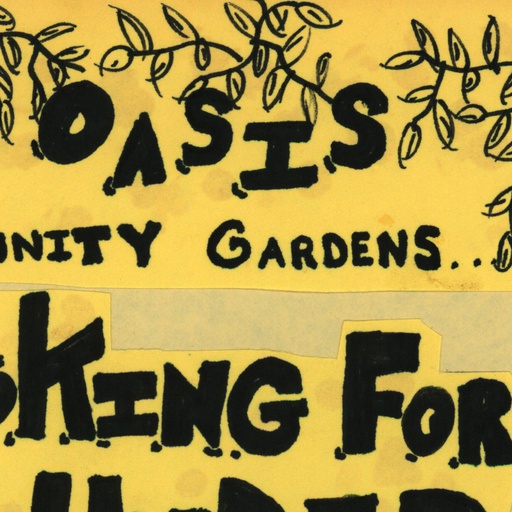 OASIS
UNITY GARDENS..
OKING FOR